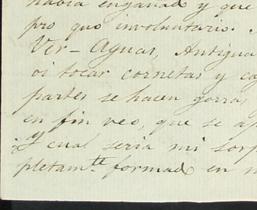 había engañad y que
pro quo involuntario.
Ver-Aguas, Antigua
oi tocar cornetas y ca
partes se hacen gorras,
en fin veo, que se ap
y cual seria mi sorp
pletam.te formad en m